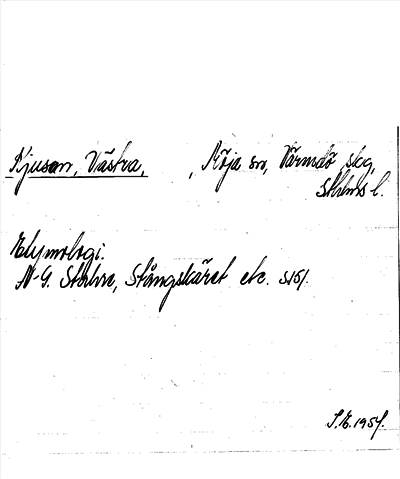 Kjusan, Västra, , Möja sn, Värmdö skg,
Sthlms l.
Etymologi.
N-G. Stahre, Stångskäret etc. s.
1954.